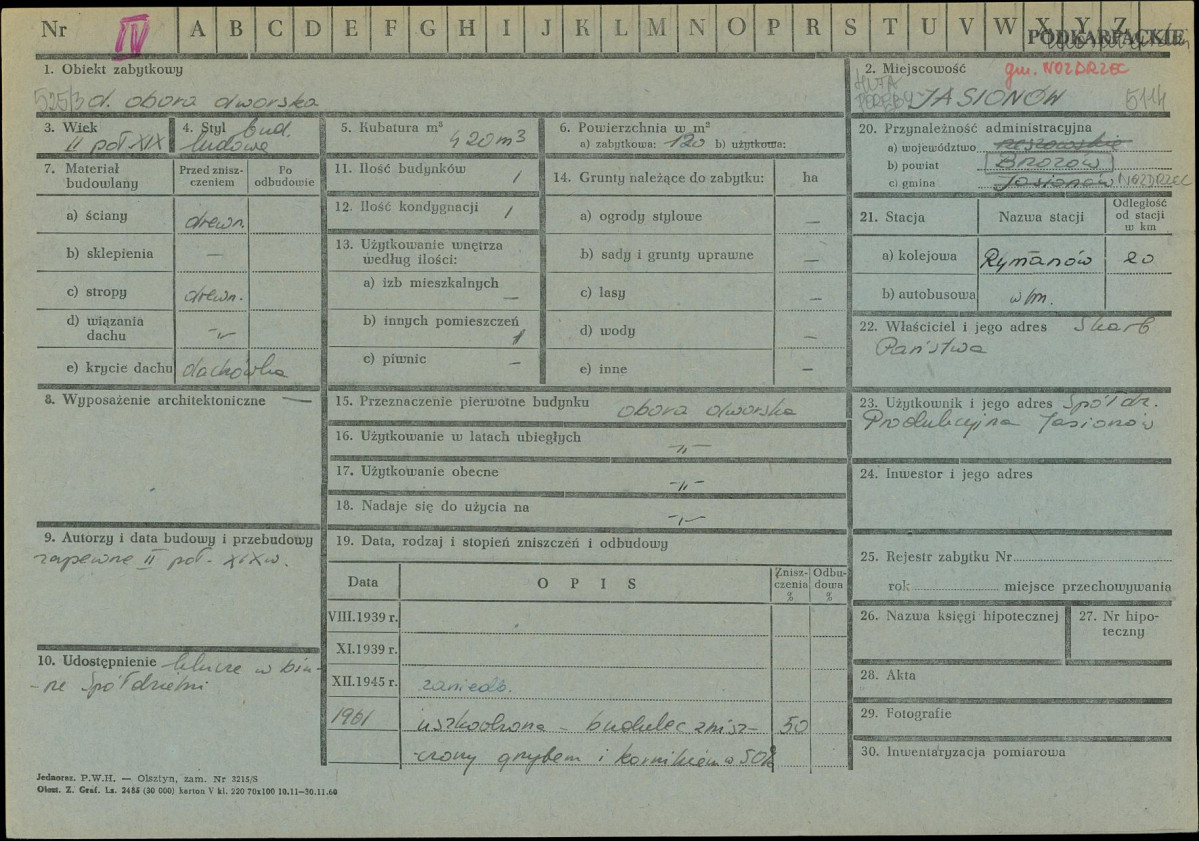 Nr IV A B C D E F G H I J K L M N O P R S T U V W X Y Z
PODKARPACKIE
1. Obiekt zabytkowy
525/3 d. obora dworska
2. Miejscowość gm. NOZDRZEC
HUTA PORĘBY JASIONÓW 5114
3. Wiek
II poł XIX
4. Styl bud.
ludowe
5. Kubatura m³ 420 m3
6. Powierzchnia w m²
a) zabytkowa: 120 b) użytkowa:
7. Materiał budowlany
Przed zniszczeniem
Po odbudowie
a) ściany drewn.
b) sklepienia —
c) stropy drewn.
d) wiązania dachu -"-
e) krycie dachu dachówka
8. Wyposażenie architektoniczne —
9. Autorzy i data budowy i przebudowy
zapewne II poł. XIX w.
10. Udostępnienie klucze w biu-
-rze Spółdzielni
11. Ilość budynków 1
12. Ilość kondygnacji 1
13. Użytkowanie wnętrza
według ilości:
a) izb mieszkalnych —
b) innych pomieszczeń 1
c) piwnic —
14. Grunty należące do zabytku: ha
a) ogrody stylowe —
b) sady i grunty uprawne —
c) lasy —
d) wody —
e) inne —
15. Przeznaczenie pierwotne budynku obora dworska
16. Użytkowanie w latach ubiegłych -"-
17. Użytkowanie obecne -"-
18. Nadaje się do użycia na -"-
19. Data, rodzaj i stopień zniszczeń i odbudowy
Data OPIS Zniszczenia % Odbudowa %
VIII.1939 r.
XI.1939 r.
XII.1945 r. zaniedb.
1961 uszkodzona – budulec znisz- 50
-czony grzybem i kornikiem w 50%
20. Przynależność administracyjna
a) województwo rzeszowskie
b) powiat BRZOZÓW
c) gmina Jasionów NOZDRZEC
21. Stacja Nazwa stacji Odległość od stacji w km
a) kolejowa Rymanów 20
b) autobusowa w/m.
22. Właściciel i jego adres Skarb
Państwa
23. Użytkownik i jego adres Spółdz.
Produkcyjna Jasionów
24. Inwestor i jego adres
25. Rejestr zabytku Nr
rok miejsce przechowywania
26. Nazwa księgi hipotecznej
27. Nr hipoteczny
28. Akta
29. Fotografie
30. Inwentaryzacja pomiarowa
Jednoraz. P.W.H. — Olsztyn, zam. Nr 3215/S
Olszt. Z. Graf. Lz. 2485 (30 000) karton V kl. 220 70x100 10.11—30.11.60